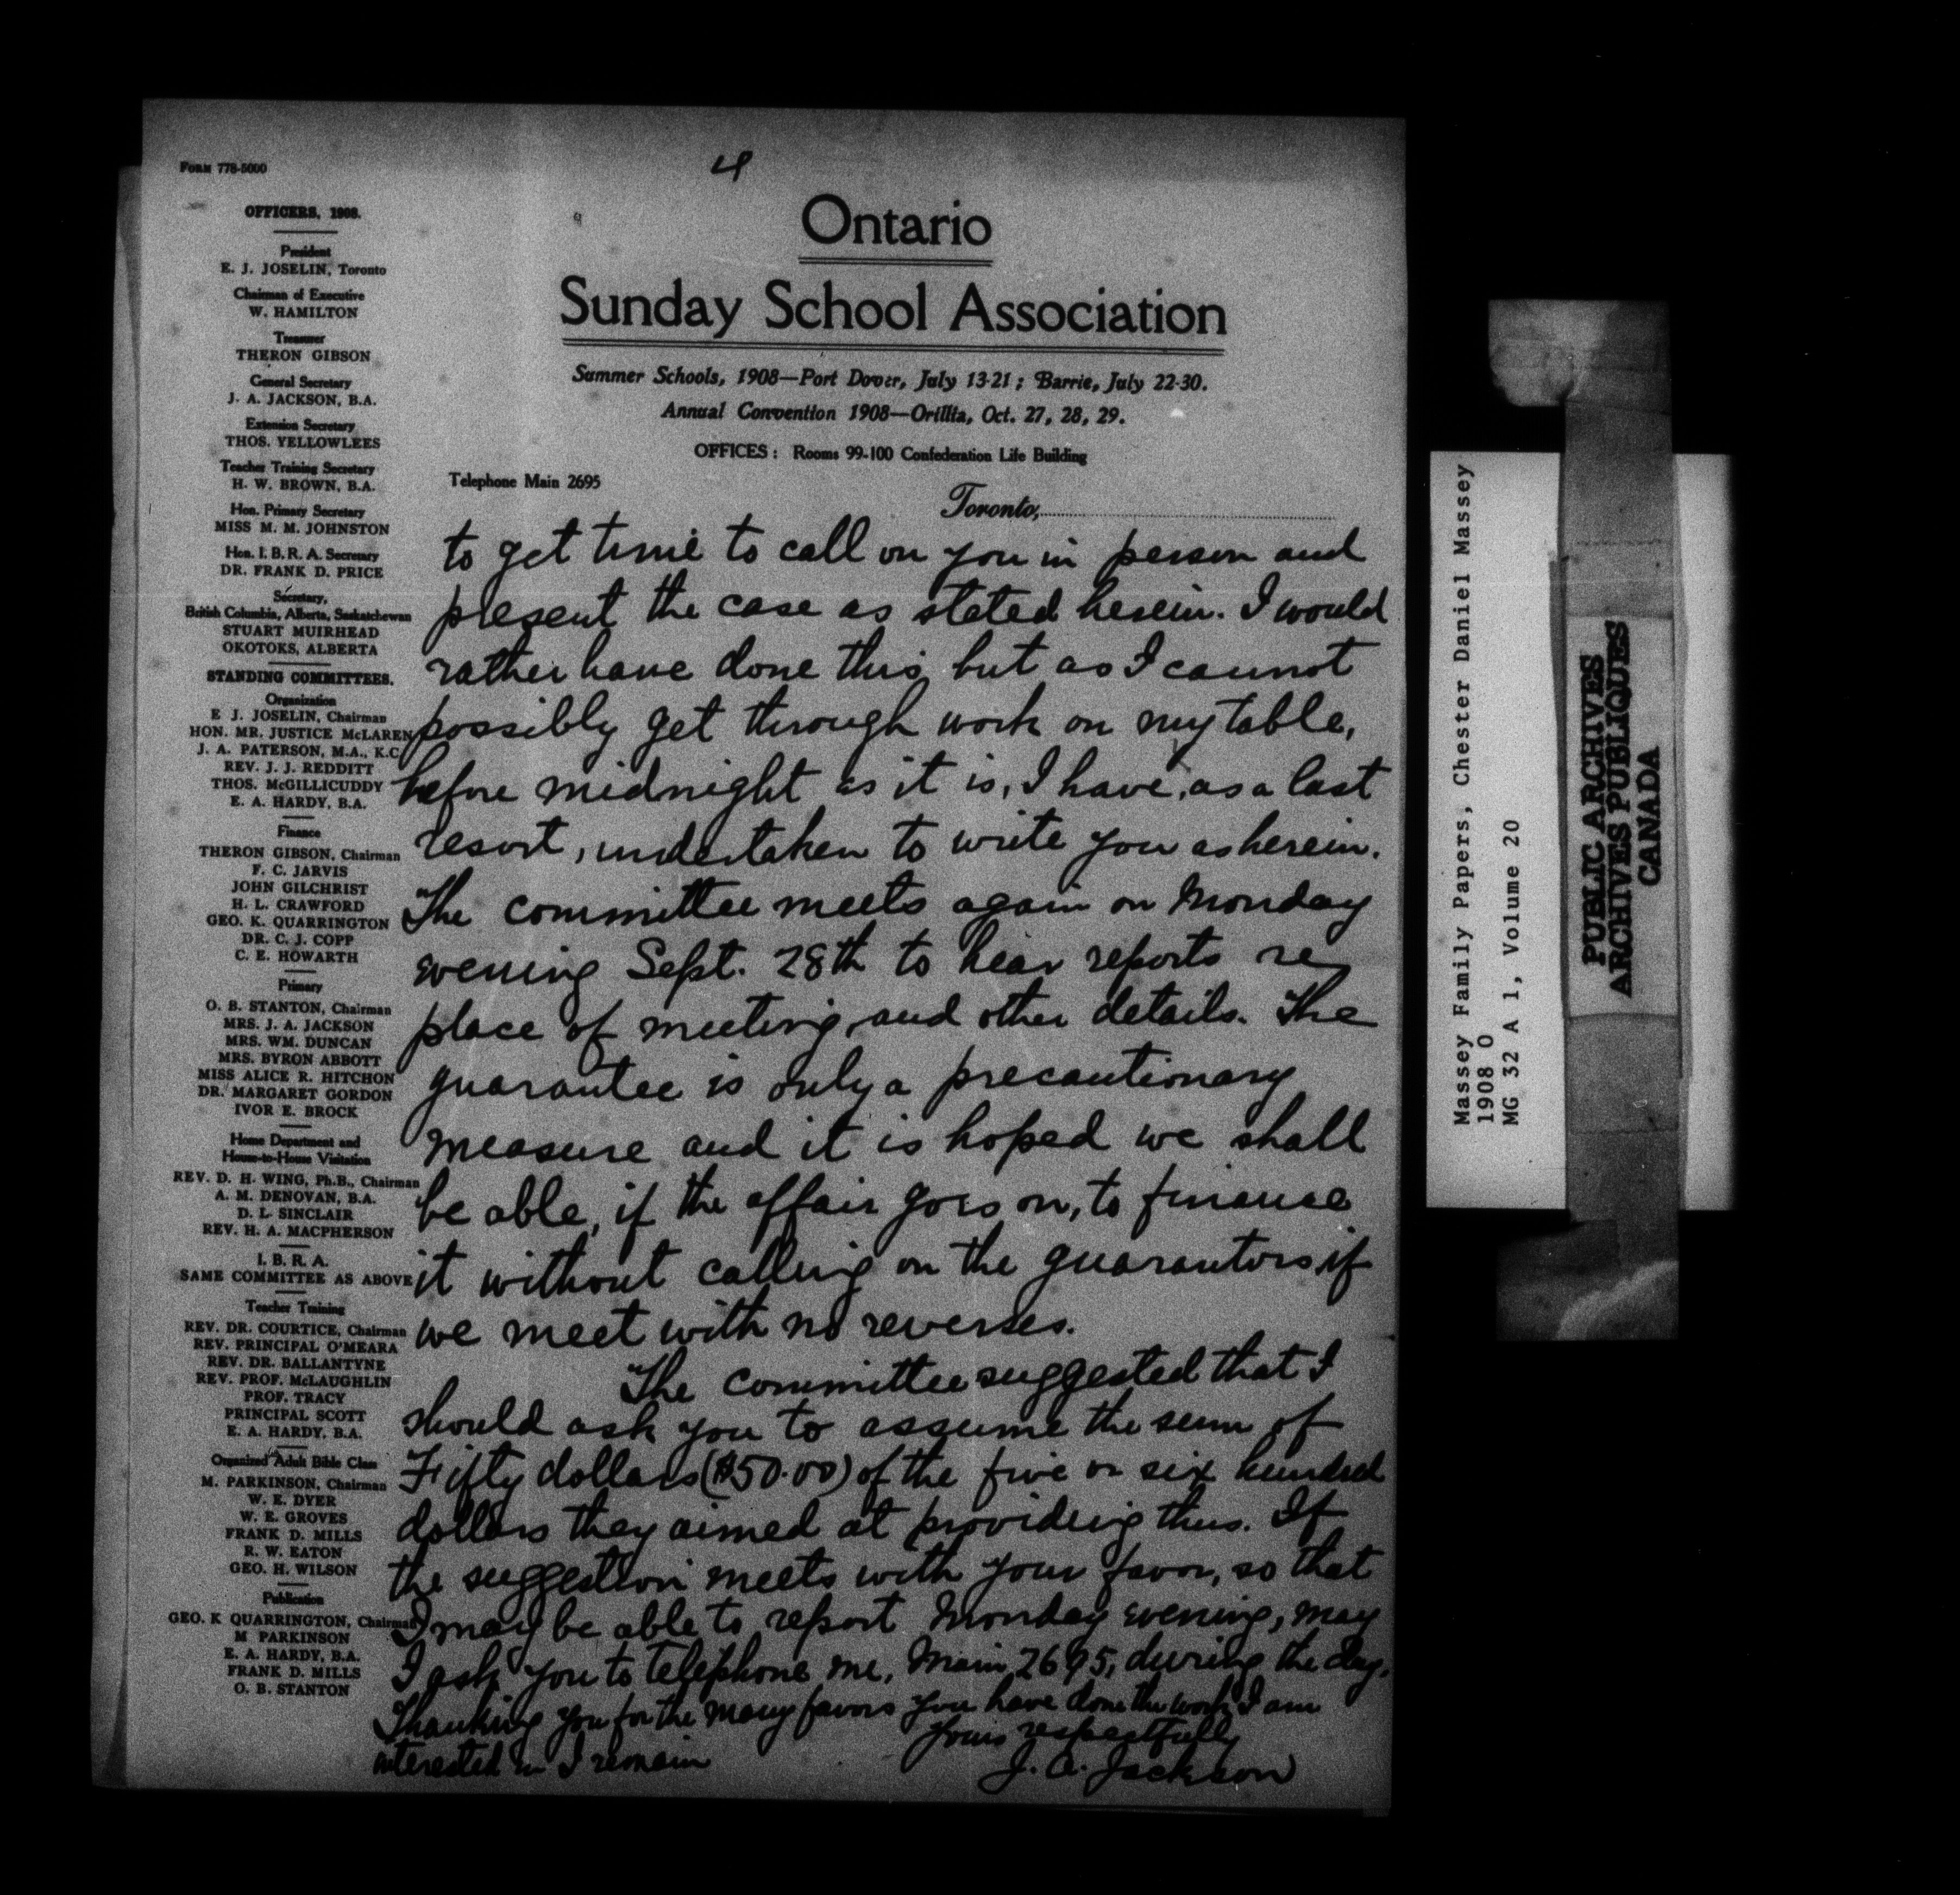 4
FORM 778-5000
OFFICERS, 1908.
President
E. J. JOSELIN, Toronto
Chairman of Executive
W. HAMILTON
Treasurer
THERON GIBSON
General Secretary
J. A. JACKSON, B.A.
Extension Secretary
THOS. YELLOWLEES
Teacher Training Secretary
H. W. BROWN, B.A.
Hon. Primary Secretary
MISS M. M. JOHNSTON
Hon. I. B. R. A. Secretary
DR. FRANK D. PRICE
Secretary,
British Columbia, Alberta, Saskatchewan
STUART MUIRHEAD
OKOTOKS, ALBERTA
STANDING COMMITTEES.
Organization
E J. JOSELIN, Chairman
HON. MR. JUSTICE McLAREN
J. A. PATERSON, M.A., K.C.
REV. J. J. REDDITT
THOS. McGILLICUDDY
E. A. HARDY, B.A.
Finance
THERON GIBSON, Chairman
F. C. JARVIS
JOHN GILCHRIST
H. L. CRAWFORD
GEO. K. QUARRINGTON
DR. C. J. COPP
C. E. HOWARTH
Primary
O. B. STANTON, Chairman
MRS. J. A. JACKSON
MRS. WM. DUNCAN
MRS. BYRON ABBOTT
MISS ALICE R. HITCHON
DR. MARGARET GORDON
IVOR E. BROCK
Home Department and
House-to-House Visitation
REV. D. H. WING, Ph.B., Chairman
A. M. DENOVAN, B.A.
D. L. SINCLAIR
REV. H. A. MACPHERSON
I. B. R. A.
SAME COMMITTEE AS ABOVE
Teacher Training
REV. DR. COURTICE, Chairman
REV. PRINCIPAL O'MEARA
REV. DR. BALLANTYNE
REV. PROF. McLAUGHLIN
PROF. TRACY
PRINCIPAL SCOTT
E. A. HARDY, B.A.
Organized Adult Bible Class
M. PARKINSON, Chairman
W. E. DYER
W. E. GROVES
FRANK D. MILLS
R. W. EATON
GEO. H. WILSON
Publication
GEO. K QUARRINGTON, Chairman
M PARKINSON
E. A. HARDY, B.A.
FRANK D. MILLS
O. B. STANTON
Ontario
Sunday School Association
Summer Schools, 1908—Port Dover, July 13-21; Barrie, July 22-30.
Annual Convention 1908—Orillia, Oct. 27, 28, 29.
OFFICES: Rooms 99-100 Confederation Life Building
Telephone Main 2695
Toronto,
to get time to call on you in person and
present the case as stated herein. I would
rather have done this, but as I cannot
possibly get through work on my table,
before midnight as it is, I have, as a last
resort, undertaken to write you as herein.
The committee meets again on Monday
evening Sept. 28th to hear reports re
place of meeting, and other details. The
guarantee is only a precautionary
measure and it is hoped we shall
be able, if the affair goes on, to finance
it without calling on the guarantors if
we meet with no reverses.
The committee suggested that I
should ask you to assume the sum of
Fifty dollars ($50.00) of the five or six hundred
dollars they aimed at providing thus. If
the suggestion meets with your favor, so that
I may be able to report Monday evening, may
I ask you to telephone me, Main 2695, during the day.
Thanking you for the many favors you have done the work I am
interested in I remain
Yours respectfully
J. A. Jackson
Massey Family Papers, Chester Daniel Massey
1908 O
MG 32 A 1, Volume 20
PUBLIC ARCHIVES
ARCHIVES PUBLIQUES
CANADA